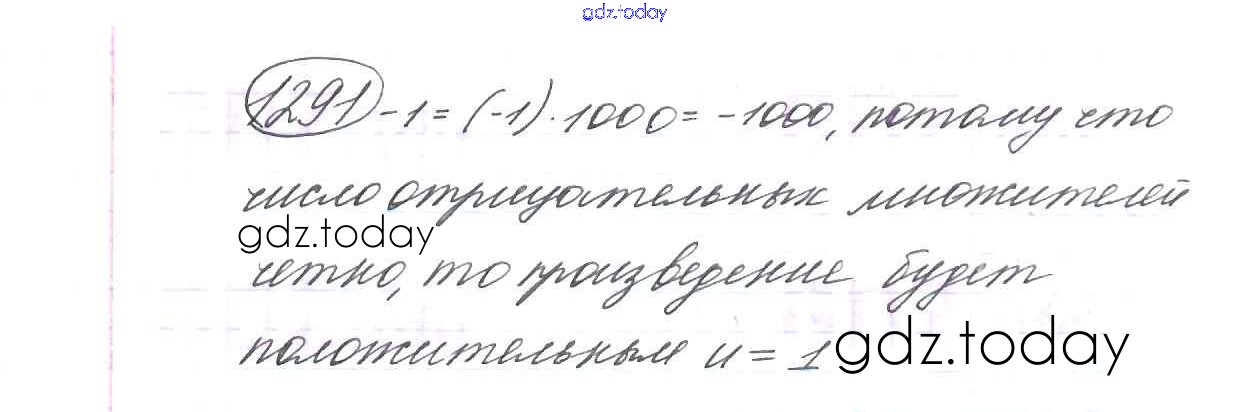 gdz.today
1291 -1 = (-1) · 1000 = -1000, потому что
число отрицательных множителей
gdz.today
четно, то произведение будет
положительным и = 1
gdz.today